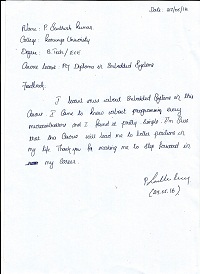 Date: 27/05/16
Name: P. Santhosh Kumar
College: Saveetha University
Degree: B.Tech / ECE
Course Learnt: PG Diploma in Embedded Systems
Feedback:
I learnt more about Embedded Systems in this
Course. I Came to know about programming using
microcontrollers and I found it pretty Simple. I'm sure
that this Course will lead me to better position in
my life. Thank you for making me to step forward in
my Career.
(27.05.16)